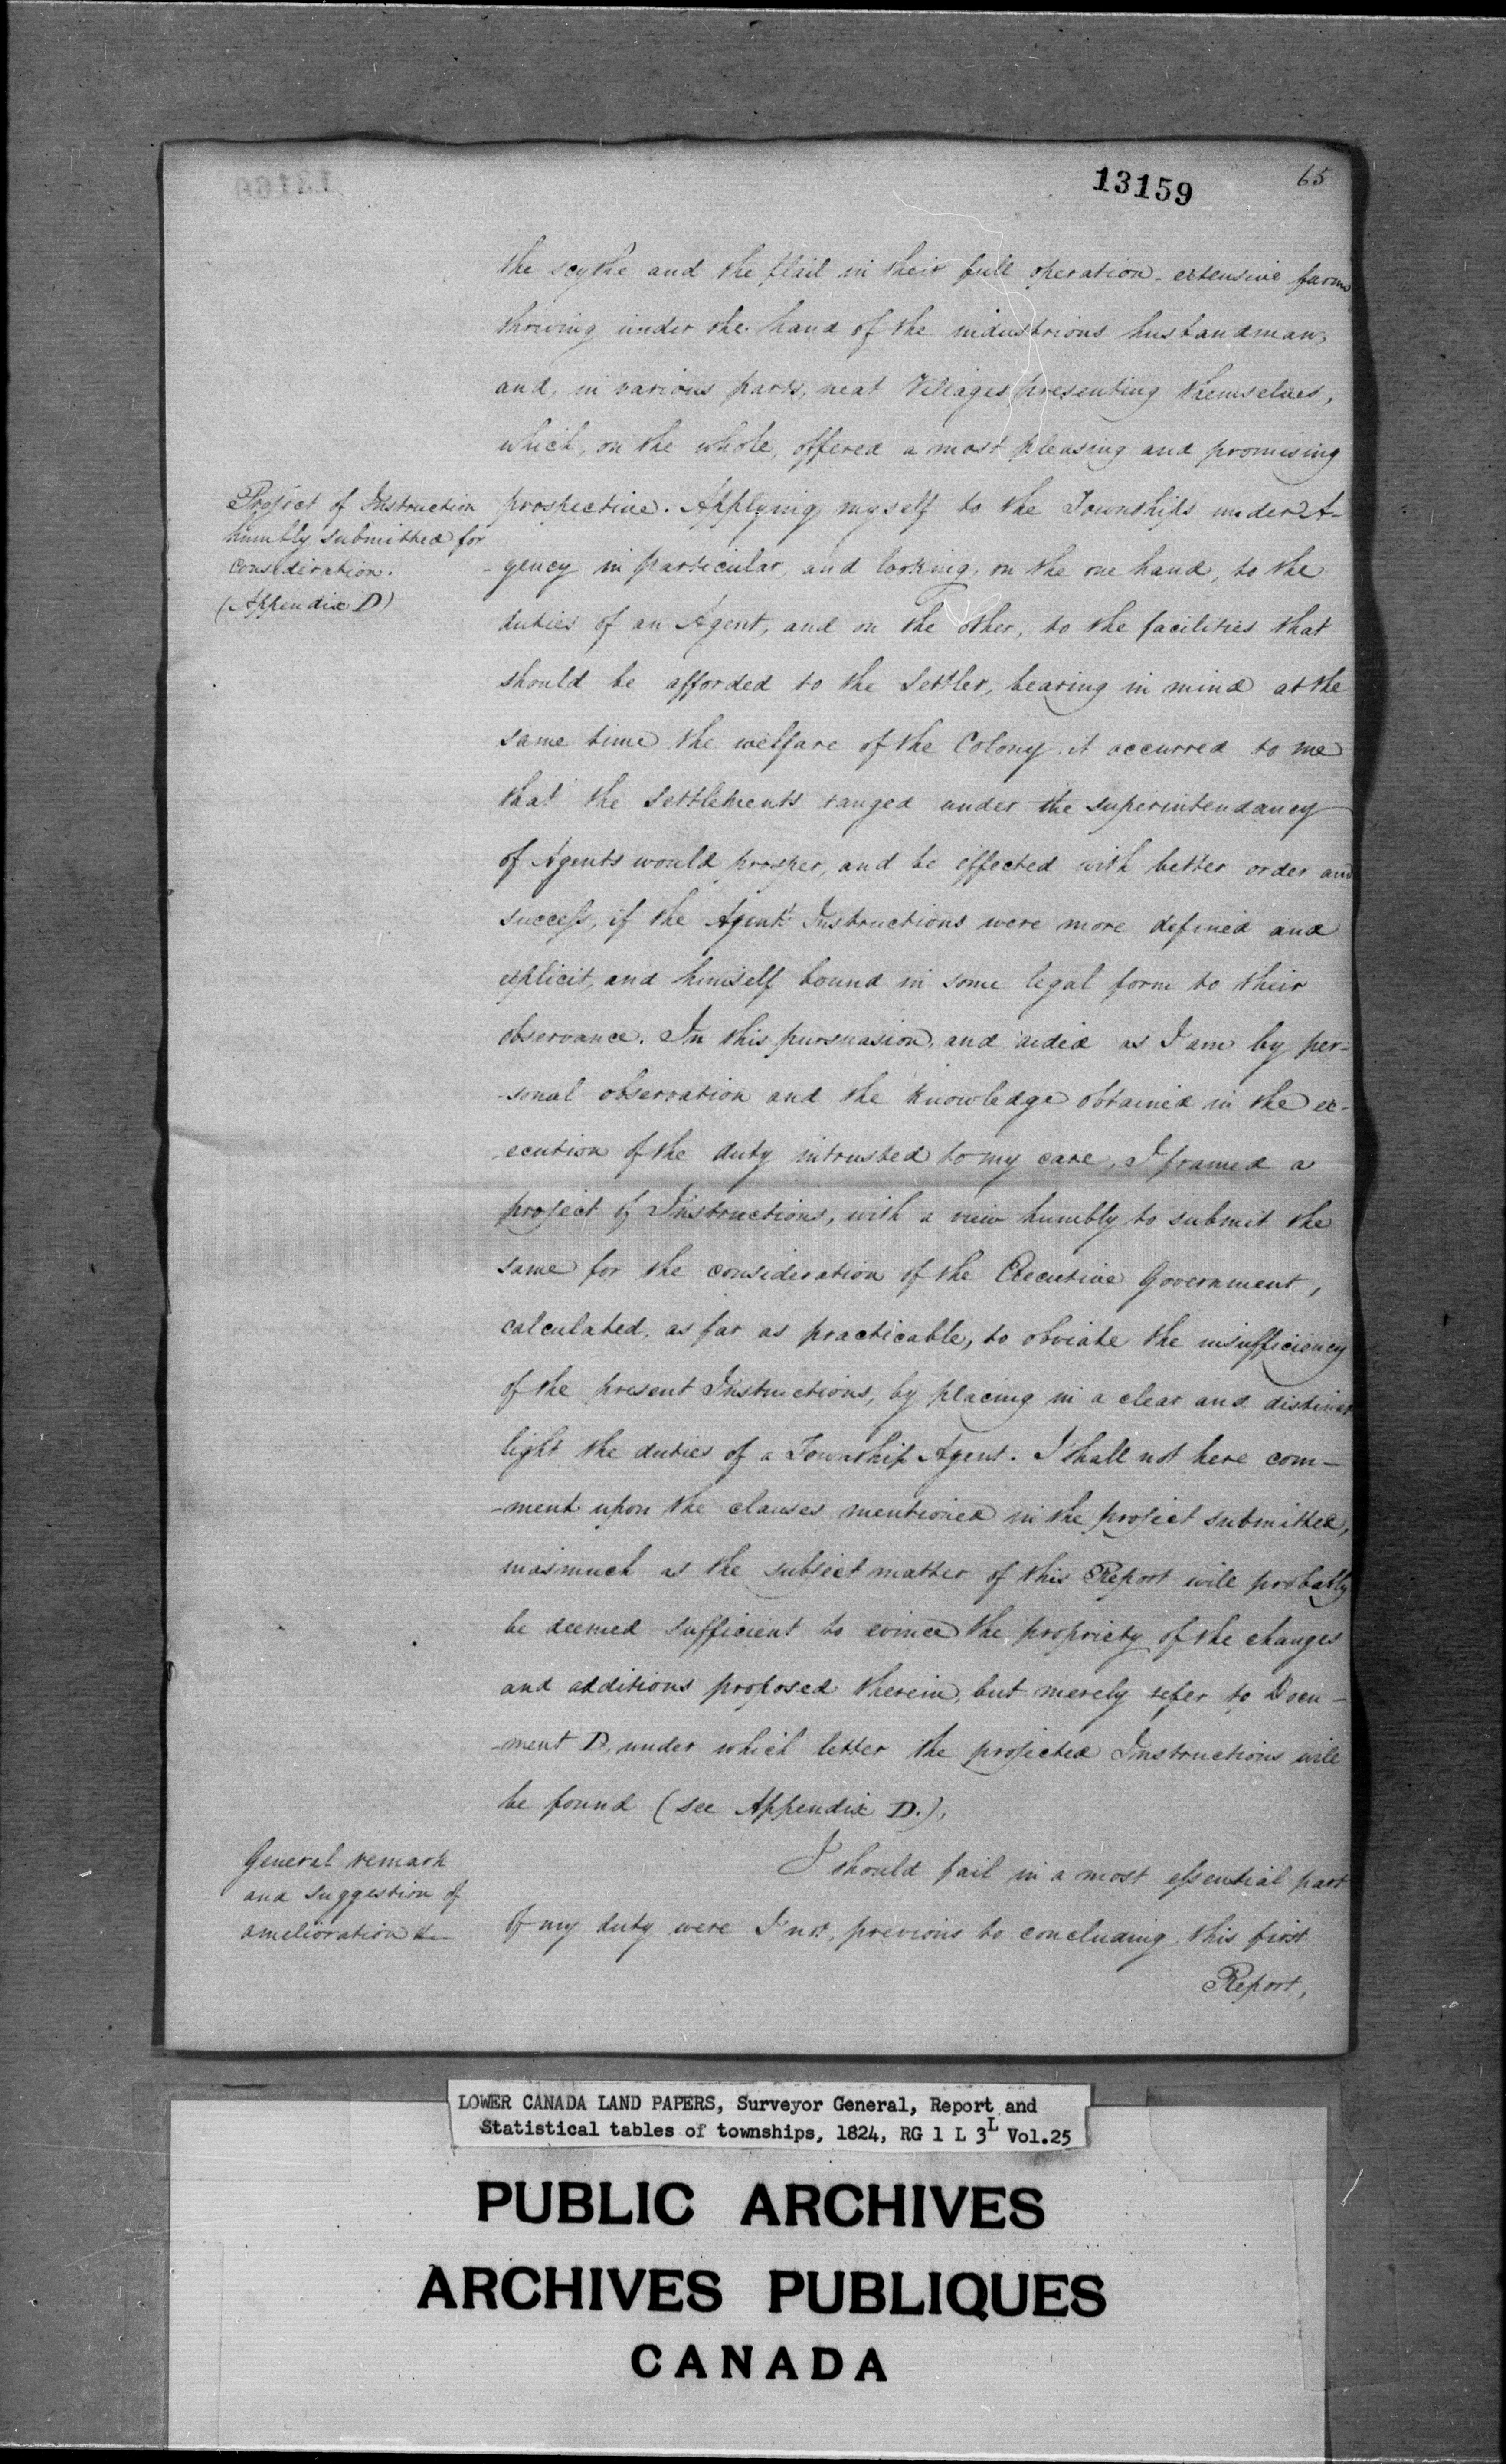 13159
65
the scythe and the flail in their full operation - extensive farms
thriving under the hand of the industrious husbandman,
and, in various parts, neat Villages presenting themselves,
which, on the whole, offered a most pleasing and promising
Project of Instruction
humbly submitted for
consideration.
(Appendix D)
prospective. Applying myself to the Townships under A-
-gency in particular, and looking, on the one hand, to the
duties of an Agent, and on the other, to the facilities that
should be afforded to the Settler, bearing in mind at the
same time the welfare of the Colony, it occurred to me
that the Settlements ranged under the superintendancy
of Agents would prosper, and be effected with better order and
success, if the Agents Instructions were more defined and
explicit, and himself bound in some legal form to their
observance. In this pursuasion, and aided as I am by per-
-sonal observation and the knowledge obtained in the ex-
-ecution of the duty intrusted to my care, I framed a
project of Instructions, with a view humbly to submit the
same for the consideration of the Executive Government,
calculated, as far as practicable, to obviate the insufficiency
of the present Instructions, by placing in a clear and distinct
light the duties of a Township Agent. I shall not here com-
-ment upon the clauses mentioned in the project submitted,
inasmuch as the subject matter of this Report will probably
be deemed sufficient to evince the propriety of the changes
and additions proposed therein, but merely refer to Docu-
-ment D, under which letter the projected Instructions will
be found (see Appendix D.).
General remark
and suggestion of
amelioration &c
I should fail in a most essential part
of my duty were I not, previous to concluding this first
Report,
LOWER CANADA LAND PAPERS, Surveyor General, Report and
Statistical tables of townships, 1824, RG 1 L 3L Vol.25
PUBLIC ARCHIVES
ARCHIVES PUBLIQUES
CANADA